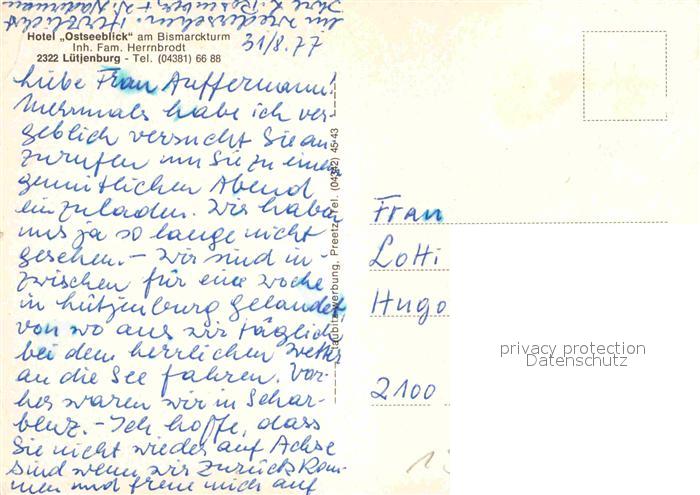 Hotel „Ostseeblick" am Bismarckturm
Inh. Fam. Herrnbrodt
2322 Lütjenburg - Tel. (04381) 66 88
31/8.77
Liebe Frau Auffermann!
Mehrmals habe ich ver-
geblich versucht Sie an-
zurufen um Sie zu einem
gemütlichen Abend
einzuladen. Wir haben
uns ja so lange nicht
gesehen. – Wir sind in-
zwischen für eine Woche
in Lützenburg gelandet,
von wo aus wir täglich
bei dem herrlichen Wetter
an die See fahren. Vor-
her waren wir in Schar-
beuz. – Ich hoffe, dass
Sie nicht wieder auf Achse
sind wenn wir zurück kom-
men und freue mich auf
ein Wiedersehen. Herzlichst
Ihre
Preetz, Tel. (04342) 45 43
Frau
Lotti
Hugo
2100
privacy protection
Datenschutz